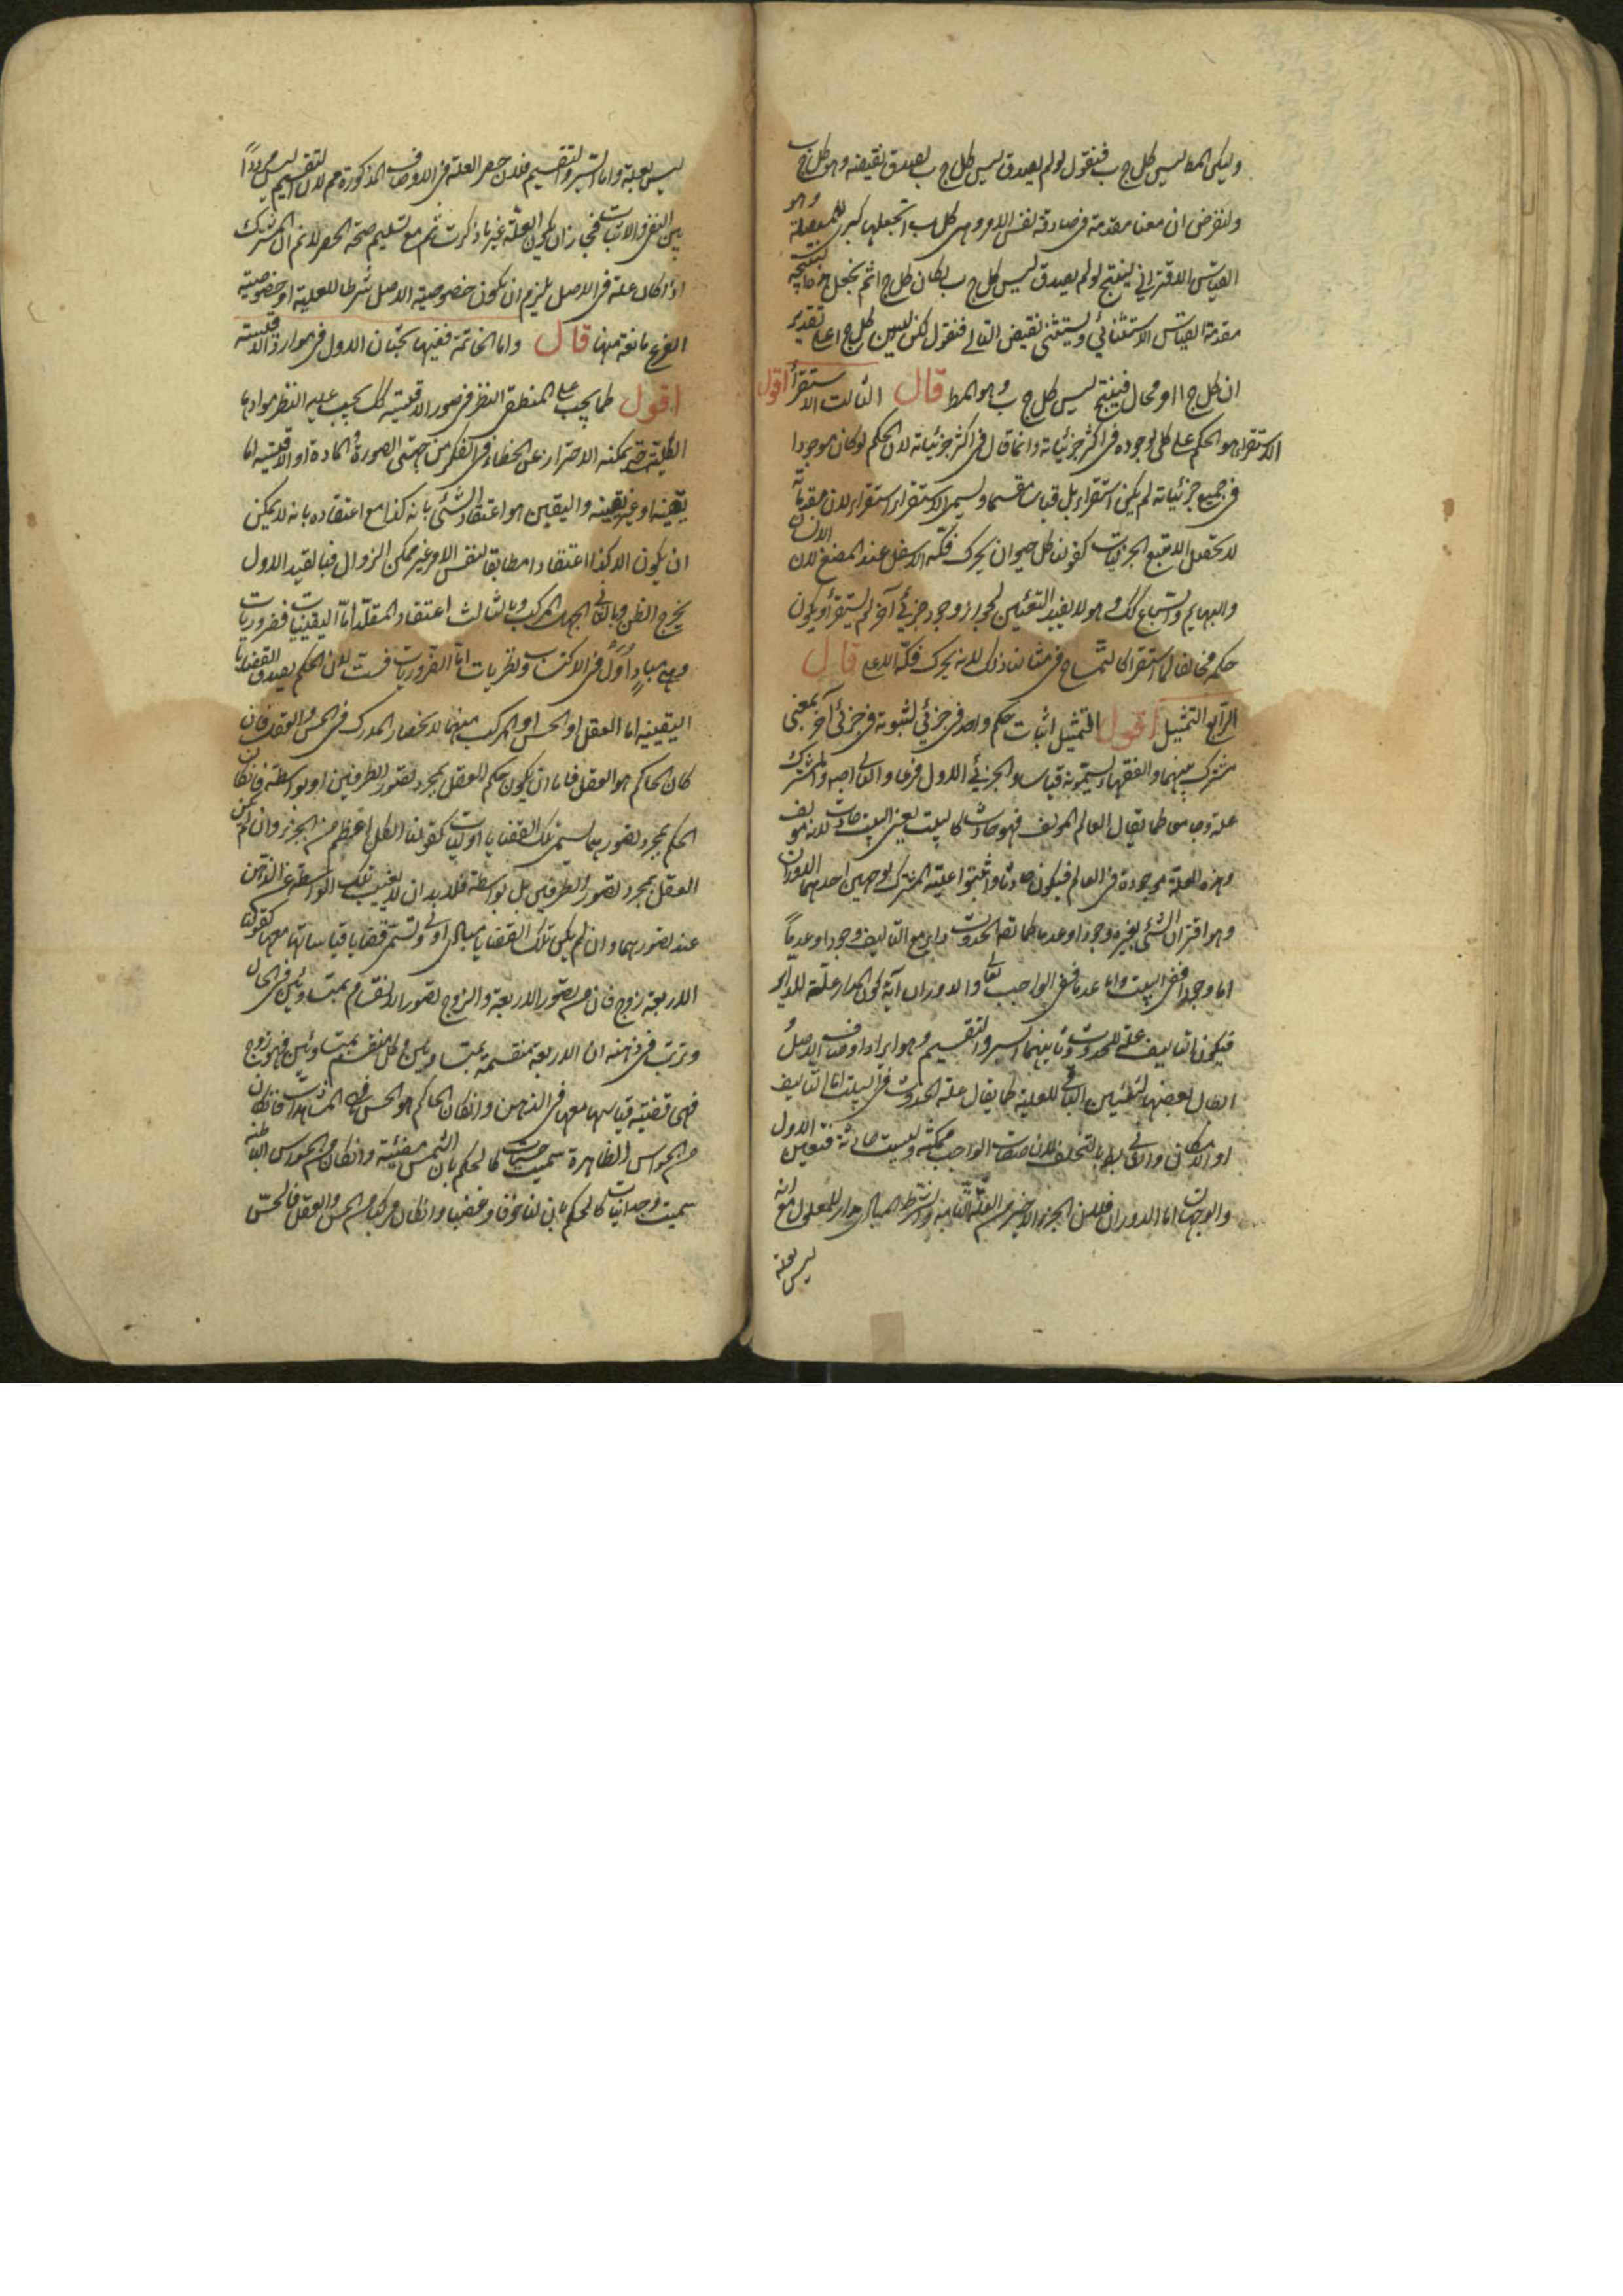 وليكن المط ليس كل ج ب فنقول لو لم يصدق ليس كل ج ب لصدق نقيضه وهو كل ج ب
ولنفرض ان معنا مقدمة صادقة فى نفس الامر وهى كل ب ا نجعلها كبرى للمتصلة وهو
القياس الاقترانى لينتج لو لم يصدق ليس كل ج ب لكان كل ج ا ثم نجعل هذه النتيجة
مقدمة القياس الاستثنائى ونستثنى نقيض التالى فنقول لكن ليس كل ج ا على تقدير
ان كل ج ا امر محال فينتج ليس كل ج ب وهو المط قال الثالث الاستقراء اقول
الاستقراء هو الحكم على كلى لوجوده فى اكثر جزئياته وانما قال فى اكثر جزئياته لان الحكم لو كان موجودا
فى جميع جزئياته لم يكن استقراء بل قياسا مقسما ويسمى الاستقراء استقراء لان مقدماته
لا تحصل الا بتتبع الجزئيات كقولنا كل حيوان يحرك فكه الاسفل عند المضغ لان الانسان
والبهايم والسباع كذلك وهو لا يفيد اليقين لجواز وجود جزئى آخر لم يستقرأ ويكون
حكمه مخالفا لما استقرئ كالتمساح فى مثالنا ذلك لانه يحرك فكه الاعلى قال
الرابع التمثيل اقول التمثيل اثبات حكم واحد فى جزئى لثبوته فى جزئى آخر بمعنى
مشترك بينهما والفقهاء يسمونه قياسا والجزئى الاول فرعا والثانى اصلا والمشترك
علة وجامعا كما يقال العالم المؤلف فهو حادث كالبيت يعنى البيت حادث لانه مؤلف
وهذه العلة موجودة فى العالم فيكون حادثا واثبتوا علية المشترك بوجهين احدهما الدوران
وهو اقتران الشئ بغيره وجودا وعدما كما يقال الحدوث دائر مع التاليف وجودا وعدما
اما وجودا ففى البيت واما عدما ففى الواجب تعالى والدوران آية كون المدار علة للدائر
فيكون التاليف علة للحدوث وثانيهما السبر والتقسيم وهو ايراد اوصاف الاصل و
ابطال بعضها ليتعين الباقى للعلية كما يقال علة الحدوث فى البيت اما التاليف
او الامكان والثانى باطل بالتخلف لان صفات الواجب ممكنة وليست حادثة فتعين الاول
والوجهان ضعيفان اما الدوران فلان الجزء الاخير من العلة التامة والشرط المساوى مدار للمعلول مع انه
ليس بعلة
ليس بعلة واما السبر والتقسيم فلان حصر العلة فى الاوصاف المذكورة مم لان التقسيم ليس مرددا
بين النفى والاثبات فجاز ان يكون العلة غير ما ذكرت ثم مع تسليم صحة الحصر لا نم ان المشترك
اذا كان علة فى الاصل يلزم ان يكون علة فى الفرع لجواز ان يكون خصوصية الاصل شرطا للعلية او خصوصية
الفرع مانعة منها قال واما الخاتمة ففيها بحثان الاول فى مواد الاقيسة
اقول كما يجب على المنطقى النظر فى صور الاقيسة كك يجب عليه النظر فى موادها
الكلية حتى يمكنه الاحتراز عن الخطاء فى الفكر من جهتى الصورة والمادة ومواد الاقيسة اما
يقينية او غير يقينية واليقين هو اعتقاد الشئ بانه كذا مع اعتقاده بانه لا يمكن
ان يكون الا كذا اعتقادا مطابقا لنفس الامر غير ممكن الزوال فبالقيد الاول
يخرج الظن وبالثانى الجهل المركب وبالثالث اعتقاد المقلد اما اليقينيات فضروريات
وهى مبادٍ اُوَل فى الاكتساب ونظريات اما الضروريات فست لان الحاكم بصدق القضايا
اليقينية اما العقل او الحس او المركب منهما لانحصار المدرك فى الحس والعقل فان
كان الحاكم هو العقل فاما ان يكون حكم العقل بمجرد تصور الطرفين او بواسطة فان كان
الحكم بمجرد تصورهما سمى تلك القضايا اوليات كقولنا الكل اعظم من الجزء وان لم يكن
العقل بمجرد تصور الطرفين بل بواسطة فلا بد ان لا يغيب تلك الواسطة عن الذهن
عند تصورهما وان لم يكن تلك القضايا مبادى اولى وتسمى قضايا قياساتها معها كقولنا
الاربعة زوج فان من تصور الاربعة والزوج تصور الانقسام بمتساويين فى الحال
وترتب فى ذهنه ان الاربعة منقسمة بمتساويين وكل منقسم بمتساويين فهو زوج
فهى قضية قياسها معها فى الذهن وان كان الحاكم هو الحس فهى المشاهدات فان كان
من الحواس الظاهرة سميت حسيات كالحكم بان الشمس مضيئة وان كان من الحواس الباطنة
سميت وجدانيات كالحكم بان لنا خوفا وغضبا وان كان مركبا من الحس والعقل فالحس